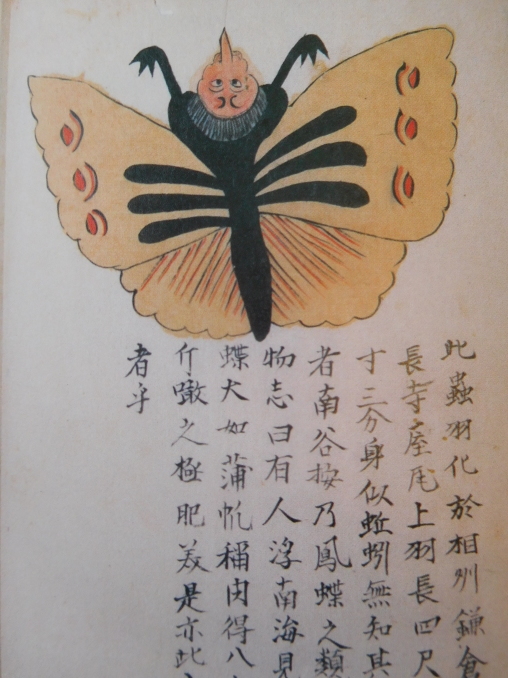 此蟲羽化於相州鎌倉
長寺之屋瓦上羽長四尺
寸三分身似蚯蚓無知其
者南谷按乃鳳蝶之類
物志曰有人浮南海見
蝶大如蒲帆稱肉得八
斤噉之極肥美是亦此
者乎